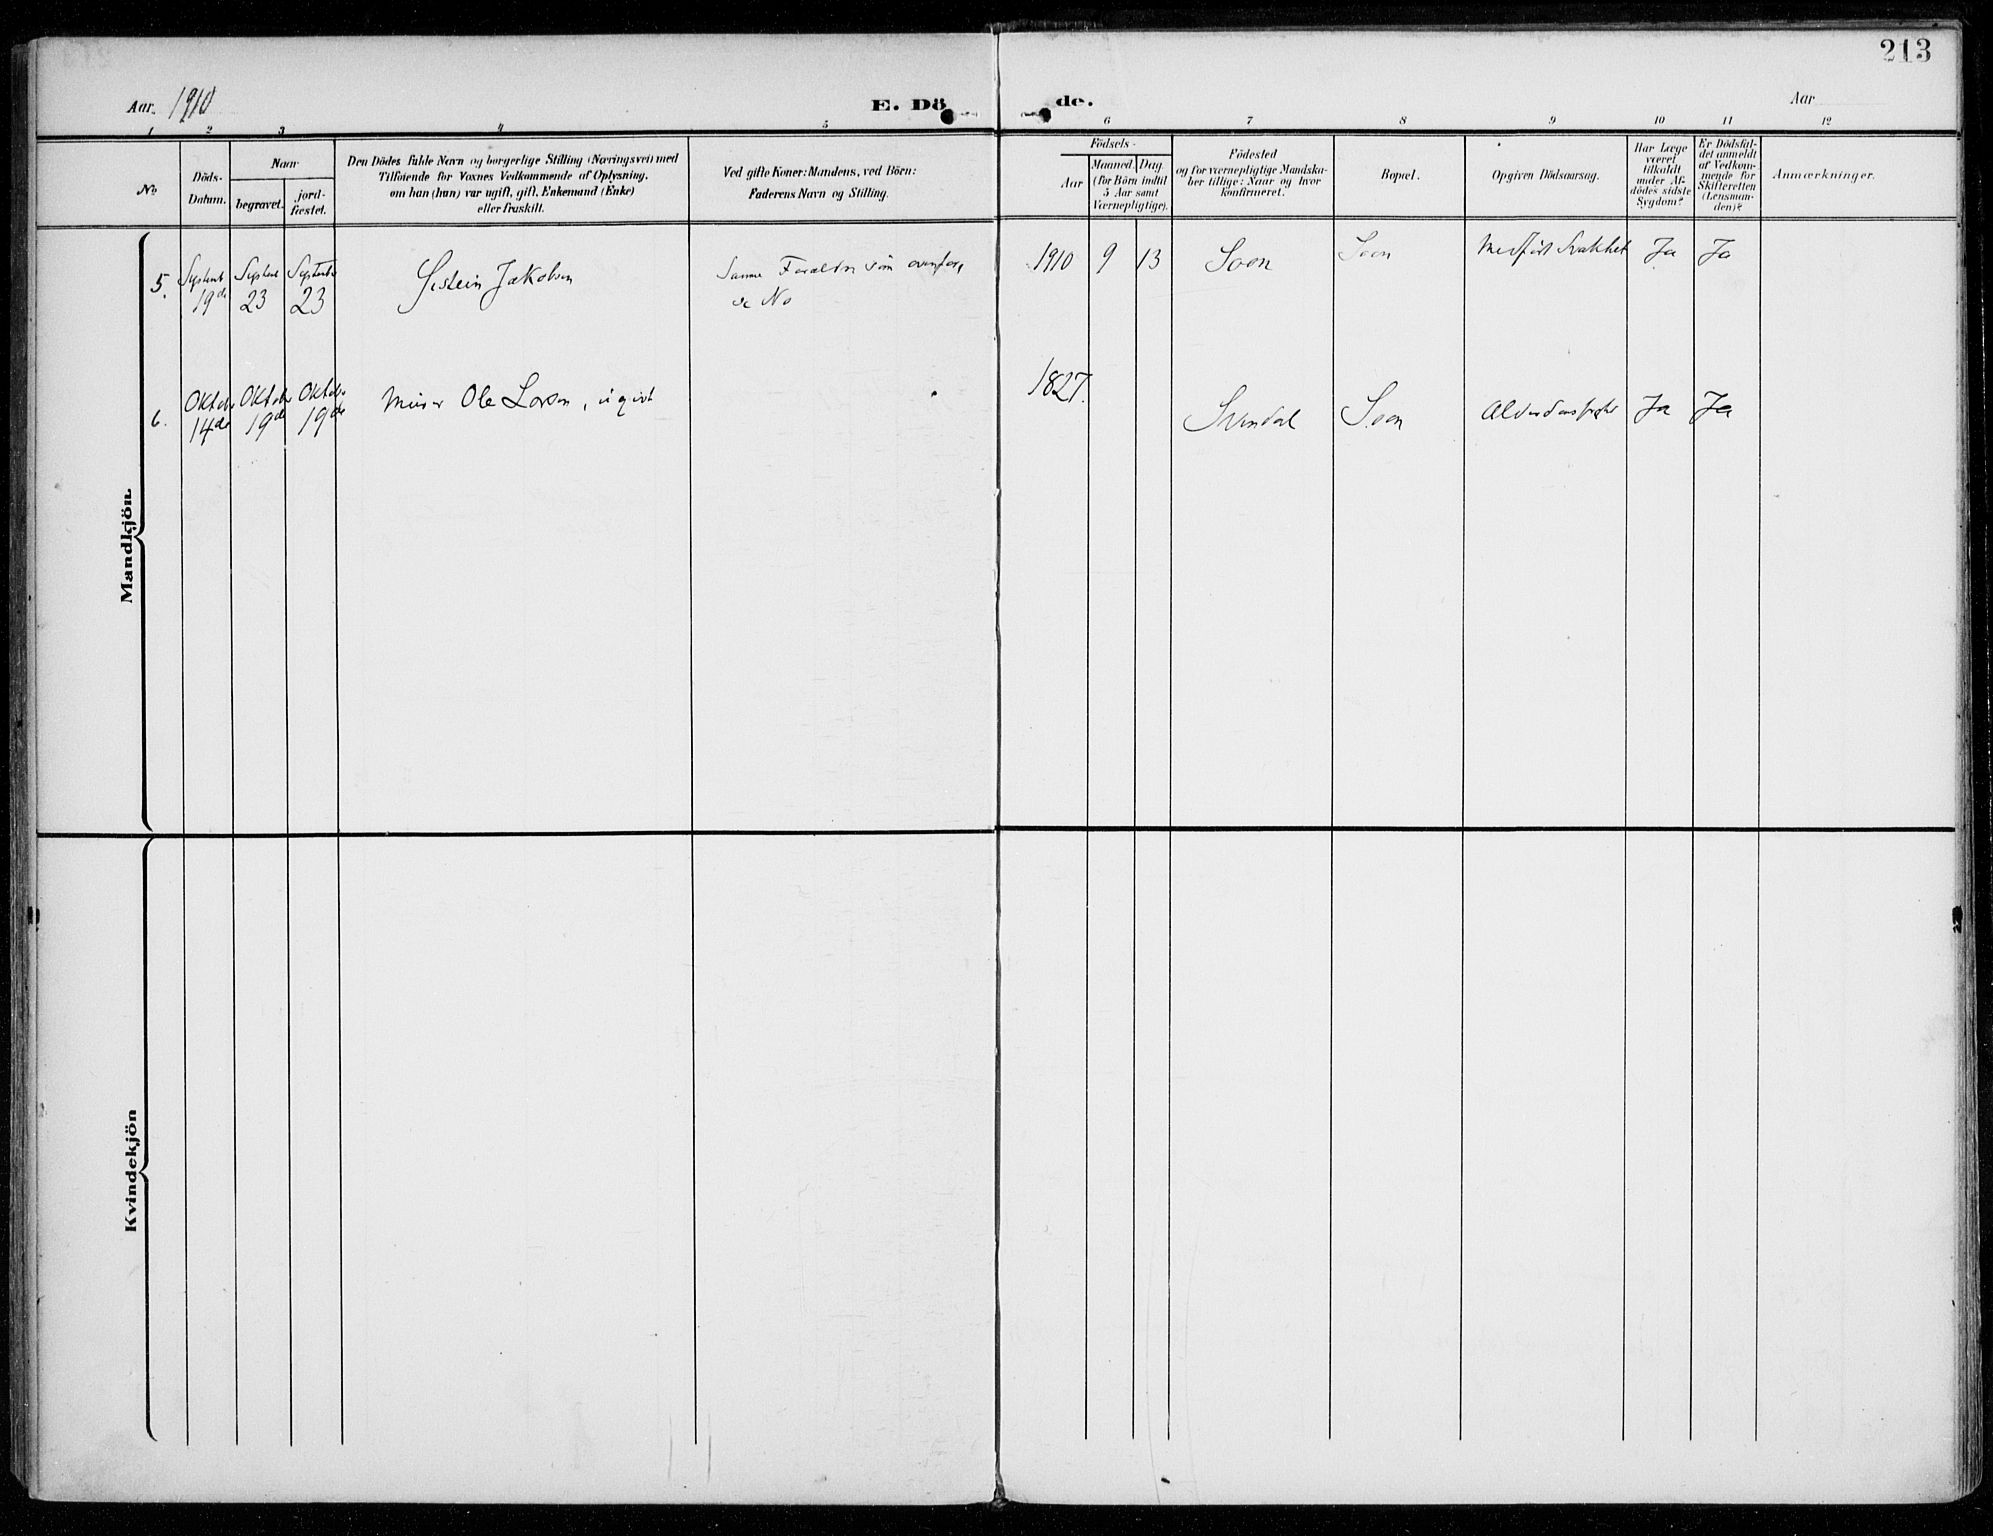 213
Aar. 1910
E. Dö
de.
Aar
1 2 3 4 5 6 7 8 9 10 11 12
No
Döds-
Datum.
Naar
begravet.
jord-
fæstet.
Den Dödes fulde Navn og borgerlige Stilling (Næringsvei) med
Tilföiende for Voxnes Vedkommende af Oplysning,
om han (hun) var ugift, gift, Enkemand (Enke)
eller fraskilt.
Ved gifte Koner: Mandens, ved Börn:
Faderens Navn og Stilling.
Födsels-
Aar
Maaned. Dag.
(for Börn indtil
5 Aar samt
Værnepligtige).
Födested
og for værnepligtige Mandska-
ber tillige: Naar og hvor
konfirmeret.
Bopæl.
Opgiven Dödsaarsag.
Har Læge
været
tilkaldt
under Af-
dödes sidste
Sygdom?
Er Dödsfal-
det anmeldt
af Vedkom-
mende for
Skifteretten
(Lensman-
den)?
Anmærkninger.
Mandkjön.
5.
Septemb
19de
Septemb
23
Septemb
23
Øistein Jakobsen
Samme Forældre som ovenfor,
se No
1910 9 13
Soon
Soon
Medfødt Svakhet
Ja
Ja
6.
Oktober
14de
Oktober
19de
Oktober
19de
Murer Ole Larsen, ugivt
1827.
Soon
Ja
Ja
Kvindekjön